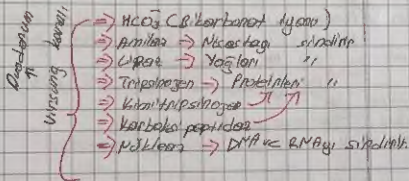 Duodenum
Virsung kanalı
⇒ HCO₃⁻ (Bikarbonat iyonu)
⇒ Amilaz → Nişastayı sindirir
⇒ Lipaz → Yağları "
⇒ Tripsinojen → Proteinleri "
⇒ Kimotripsinojen
⇒ Karboksipeptidaz
⇒ Nükleaz → DNA ve RNAyı sindirir.